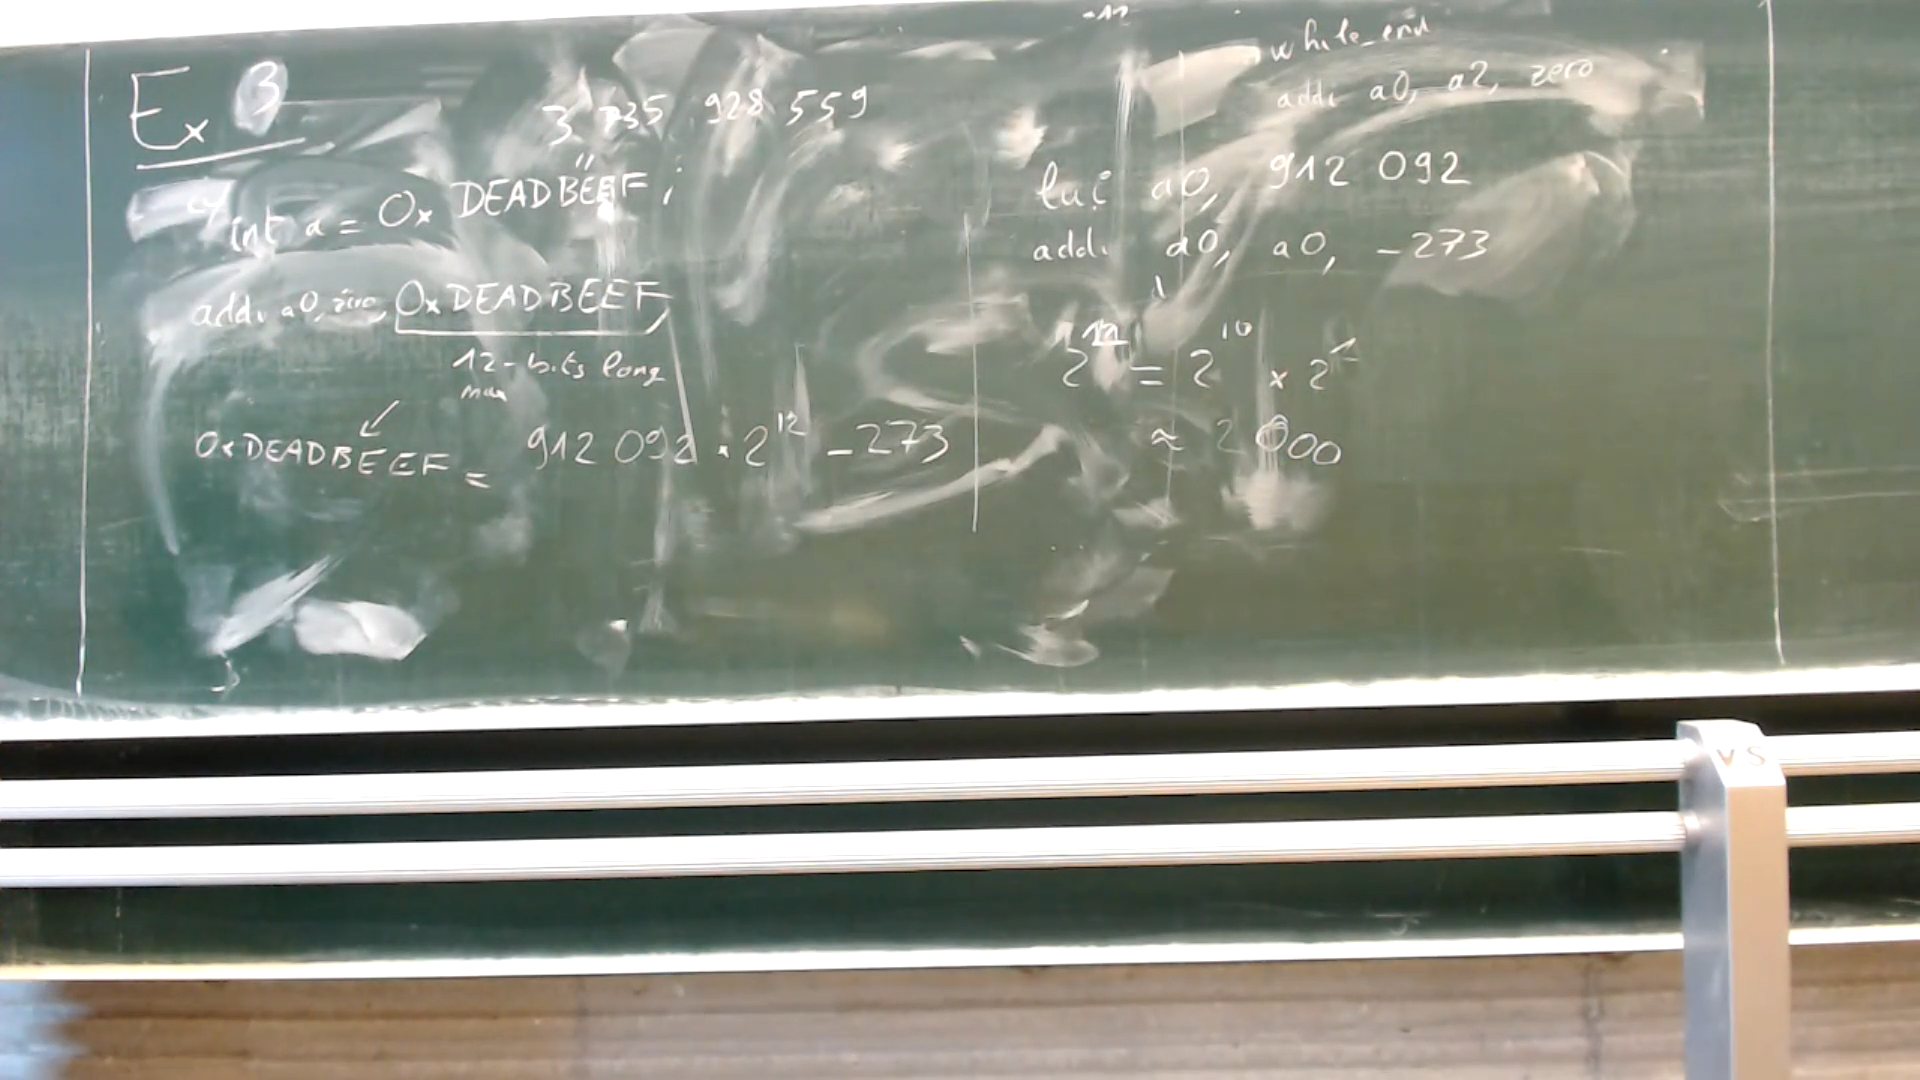 Ex 3
3 735 928 559
"
int a = 0x DEADBEEF;
addi a0, zero, 0x DEADBEEF,
12-bits long
max
0x DEADBEEF = 912 092 . 2^12 - 273
-11
while_end
addi a0, a2, zero
lui a0, 912 092
addi a0, a0, -273
= 2^10 x 2
≈ 2 000
VS